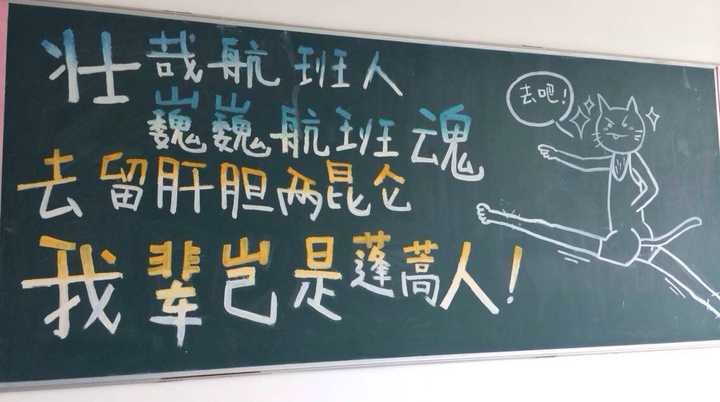 壮哉航班人
巍巍航班魂
去留肝胆两昆仑
我辈岂是蓬蒿人!
去吧!